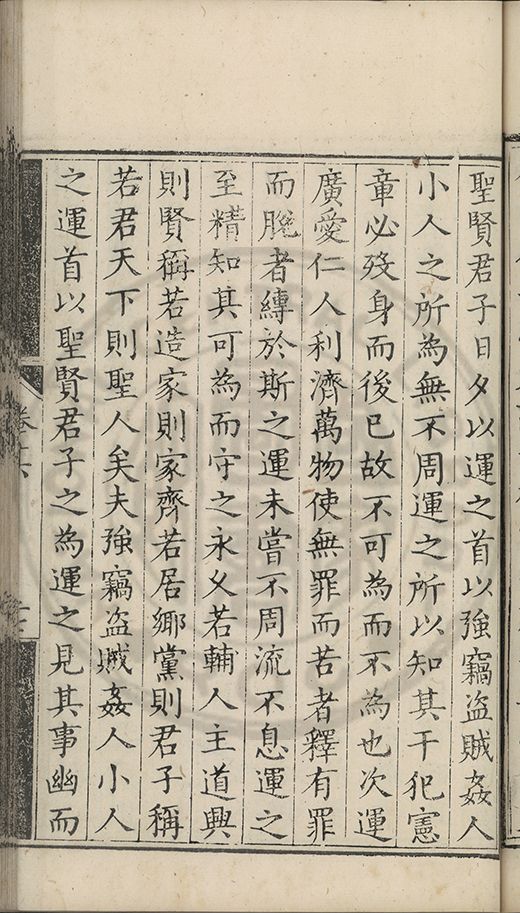 聖賢君子日夕以運之首以強竊盜賊姦人
小人之所為無不周運之所以知其干犯憲
章必歿身而後已故不可為而不為也次運
廣愛仁人利濟萬物使無罪而苦者釋有罪
而脫者縳於斯之運未嘗不周流不息運之
至精知其可為而守之永乂若輔人主道興
則賢稱若造家則家齊若居鄉黨則君子稱
若君天下則聖人矣夫強竊盜賊姦人小人
之運首以聖賢君子之為運之見其事幽而